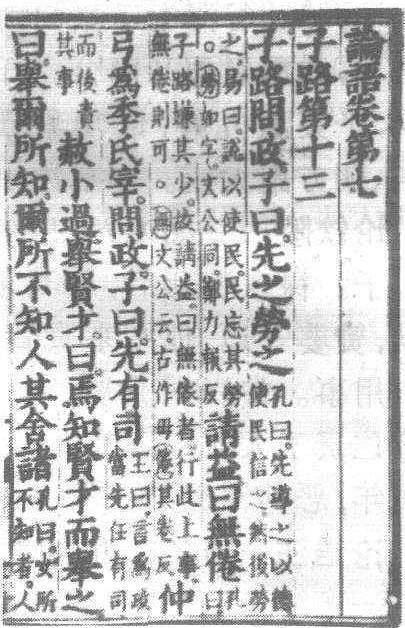 論語卷第七
子路第十三
子路問政。子曰。先之勞之。孔曰。先導之以德使民信之。然後勞
之。易曰。說以使民。民忘其勞。勞如字。文公同。鄭力報反請益。曰。無倦。孔曰
子路嫌其少。故請益。曰無倦者。行此上事。無倦則可。無文公云。古作毋倦其卷反仲
弓為季氏宰。問政。子曰。先有司。王曰。言為政當先任有司
而後責其事赦小過。舉賢才。曰。焉知賢才而舉之。
曰。舉爾所知。爾所不知。人其舍諸。孔曰。女所不知者。人